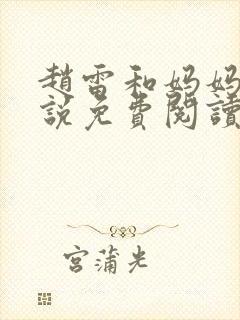 趙雷和媽媽
說免費閱讀
宮蒲光